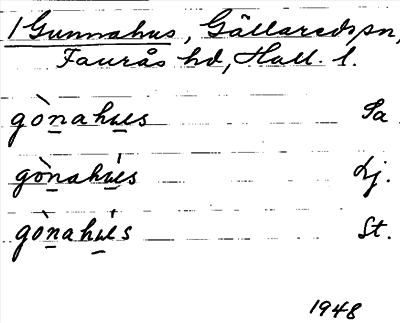 1 Gunnahus, Gällareds sn,
Faurås hd, Hall. l.
gònahus Sa
gònahu̇s Lj.
gònahu̇s St.
1948